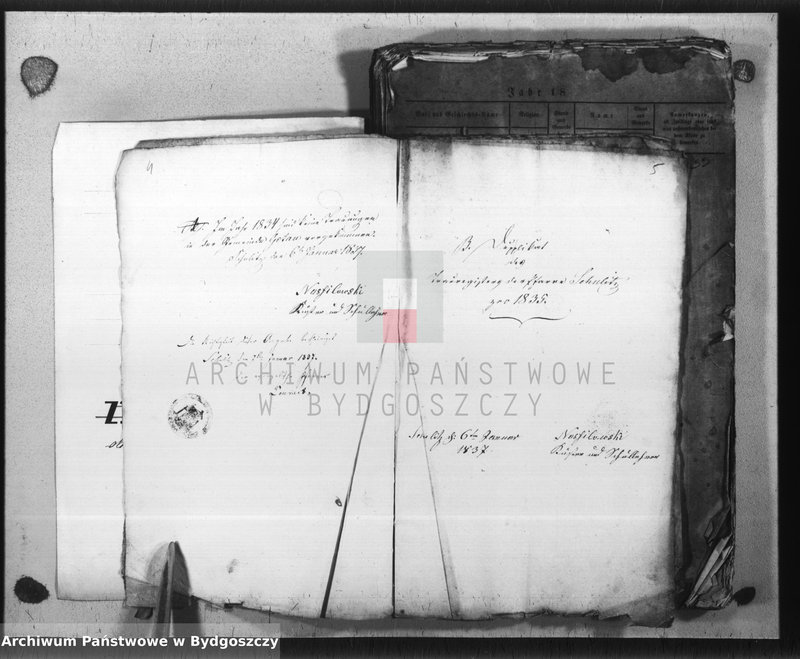 Jahr 18
Vor- und Geschlechts-Name
Religion.
Stand und Gewerbe
Name
Stand und Gewerbe
Bemerkungen,
4
Im Jahr 1834 sind keine Trauungen
in der Gemeinde vorgekommen.
Schulitz den 6ten Januar 1837.
Nosfilowski
Küster und Schullehrer
Die Richtigkeit dieser Angabe bescheinigt
Schulitz den 7ten Januar 1837.
5
B. Dupplikat
des
Trauregisters der Pfarre Schulitz
pro 1835.
Schulitz d. 6ten Januar
1837
Nosfilowski
Küster und Schullehrer
ARCHIWUM PAŃSTWOWE
W BYDGOSZCZY
Archiwum Państwowe w Bydgoszczy